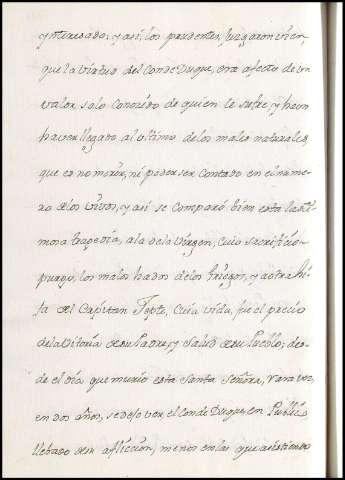 ynteresado; y así, los prudentes, juzgaron vien,
que la virtud del Conde Duque, era afecto de un
valor solo Conocido de quien le sufre, y havn
haver llegado al vltimo de los males naturales,
que es no morir, ni poder ser Contado en el nume-
ro de los vivos, y asi se Comparó bien esta lasti-
mosa tragedia, a la de la Virgen, Cuio sacrificio
purgo, los malos hados de los Griegos, y a otra Hi-
ja del Capitan Jepte, Cuia vida, fue el precio
de la Vitoria de su Padre, y Salud de su Pueblo; des-
de el dia que murio esta Santa Señora, rara vez,
en dos años, se dejo ver el Conde Duque, en Publico
llebado de su afliccion, menos en las que asistiendo